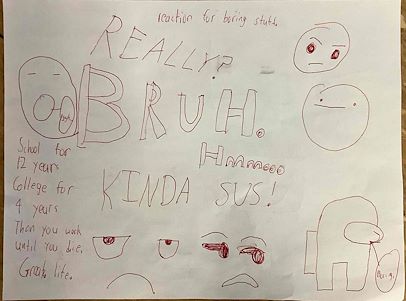 reaction for boring stuff.
REALLY?
BRUH.
Hmmmooo
School for
12 years
College for
4 years
Then you work
until you die.
Great life.
KINDA SUS!
Boring.